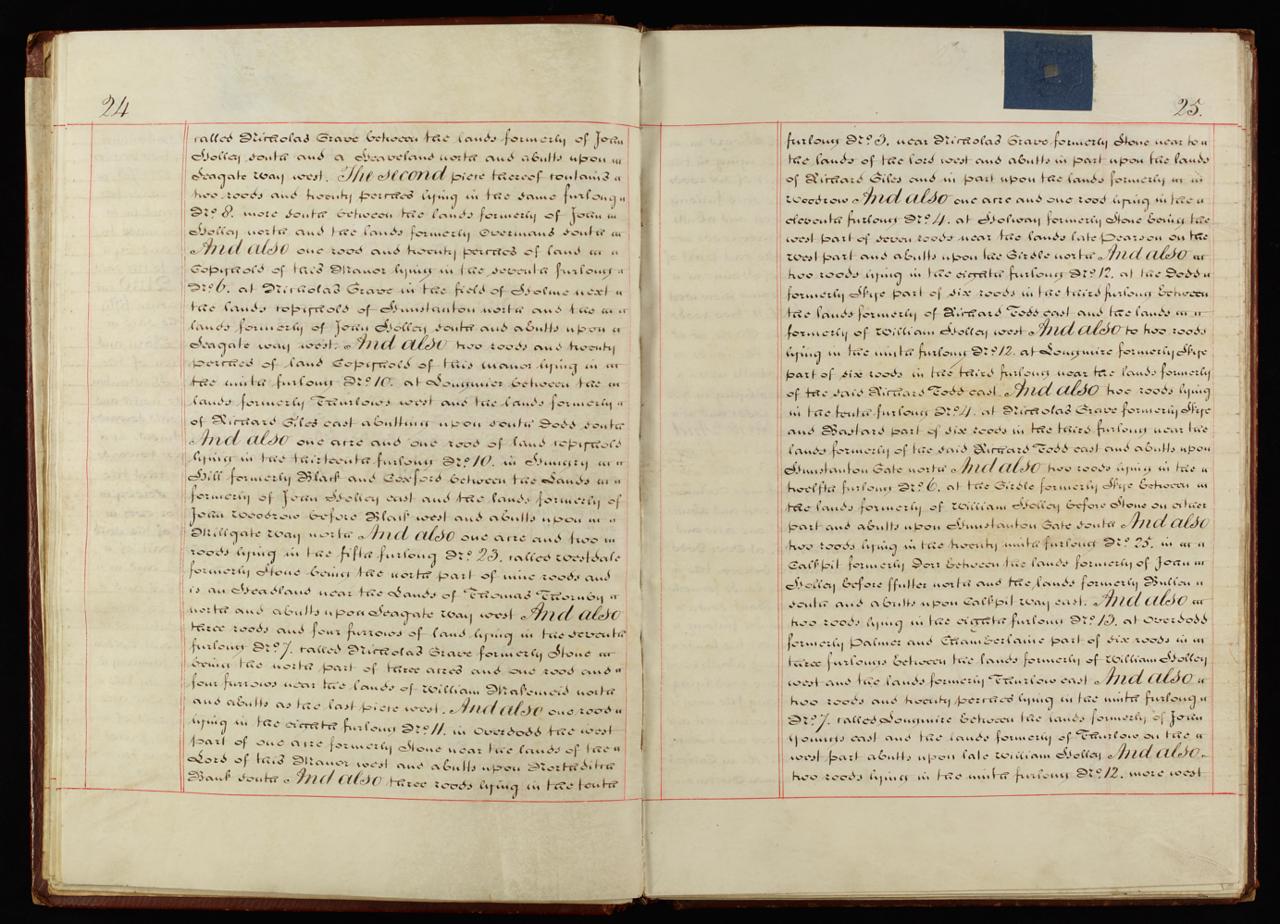 24
called Nicholas Grave between the lands formerly of John
Holley south and a Heaveland north and abutts upon
Seagate Way west. The second piece thereof contains
two roods and twenty perches lying in the same furlong
No. 8. more south between the lands formerly of John
Holley north and the lands formerly Overmans south
And also one rood and twenty perches of land
Copyhold of this Manor lying in the seventh furlong
No. 6. at Nicholas Grave in the field of Holme next
the lands copyhold of Hunstanton north and the
lands formerly of John Holley south and abutts upon
Seagate way west. And also two roods and twenty
perches of land Copyhold of this manor lying in
the ninth furlong No. 10. at Longmier between the
lands formerly Thurlows west and the lands formerly
of Richard Giles east abutting upon south Dodd south
And also one acre and one rood of land copyhold
lying in the thirteenth furlong No. 10. in Hungry
Hill formerly Black and Coxford between the Lands
formerly of John Holley east and the lands formerly of
John Woodrow before Black west and abutts upon
Millgate way north And also one acre and two
roods lying in the fifth furlong No. 23. called Westdale
formerly Stone being the north part of nine roods and
is an Headland near the Lands of Thomas Thornby
north and abutts upon Seagate Way west And also
three roods and four furrows of land lying in the seventh
furlong No. 7. called Nicholas Grave formerly Stone
being the north part of three acres and one rood and
four furrows near the lands of William Makemeid north
and abutts as the last piece west. And also one rood
lying in the eighth furlong No. 11. in Overdodd the west
part of one acre formerly Stone near the lands of the
Lord of this Manor west and abutts upon Northditch
Bank south And also three roods lying in the tenth
25.
furlong No. 3. near Nicholas Grave formerly Stone near to
the lands of the lord west and abutts in part upon the lands
of Richard Giles and in part upon the lands formerly
Woodrow And also one acre and one rood lying in the
eleventh furlong No. 4. at Holway formerly Stone being the
west part of seven roods near the lands late Pearson on the
west part and abutts upon the Girdle north And also
two roods lying in the eighth furlong No. 12. at the Dodd
formerly Skye part of six roods in the third furlong between
the lands formerly of Richard Todd east and the lands
formerly of William Holley west And also to two roods
lying in the ninth furlong No. 12. at Longmire formerly Skye
part of six roods in the third furlong near the lands formerly
of the said Richard Todd east. And also two roods lying
in the tenth furlong No. 4. at Nicholas Grave formerly Skye
and Bastard part of six roods in the third furlong near the
lands formerly of the said Richard Todd east and abutts upon
Hunstanton Gate north And also two roods lying in the
twelfth furlong No. 6. at the Girdle formerly Skye between
the lands formerly of William Holley before Stone on either
part and abutts upon Hunstanton Gate south And also
two roods lying in the twenty ninth furlong No. 25. in
Calkpit formerly Dorr between the lands formerly of John
Holley before ffulter north and the lands formerly Bullion
south and abutts upon Calkpit way east. And also
two roods lying in the eighth furlong No. 13. at Overdodd
formerly Palmer and Chamberlaine part of six roods in
three furlongs between the lands formerly of William Holley
west and the lands formerly Thurlow east And also
two roods and twenty perches lying in the ninth furlong
No. 7. called Longmire between the lands formerly of John
Youngs east and the lands formerly of Thurlow on the
west part abutts upon late William Holley And also
two roods lying in the ninth furlong No. 12. more west